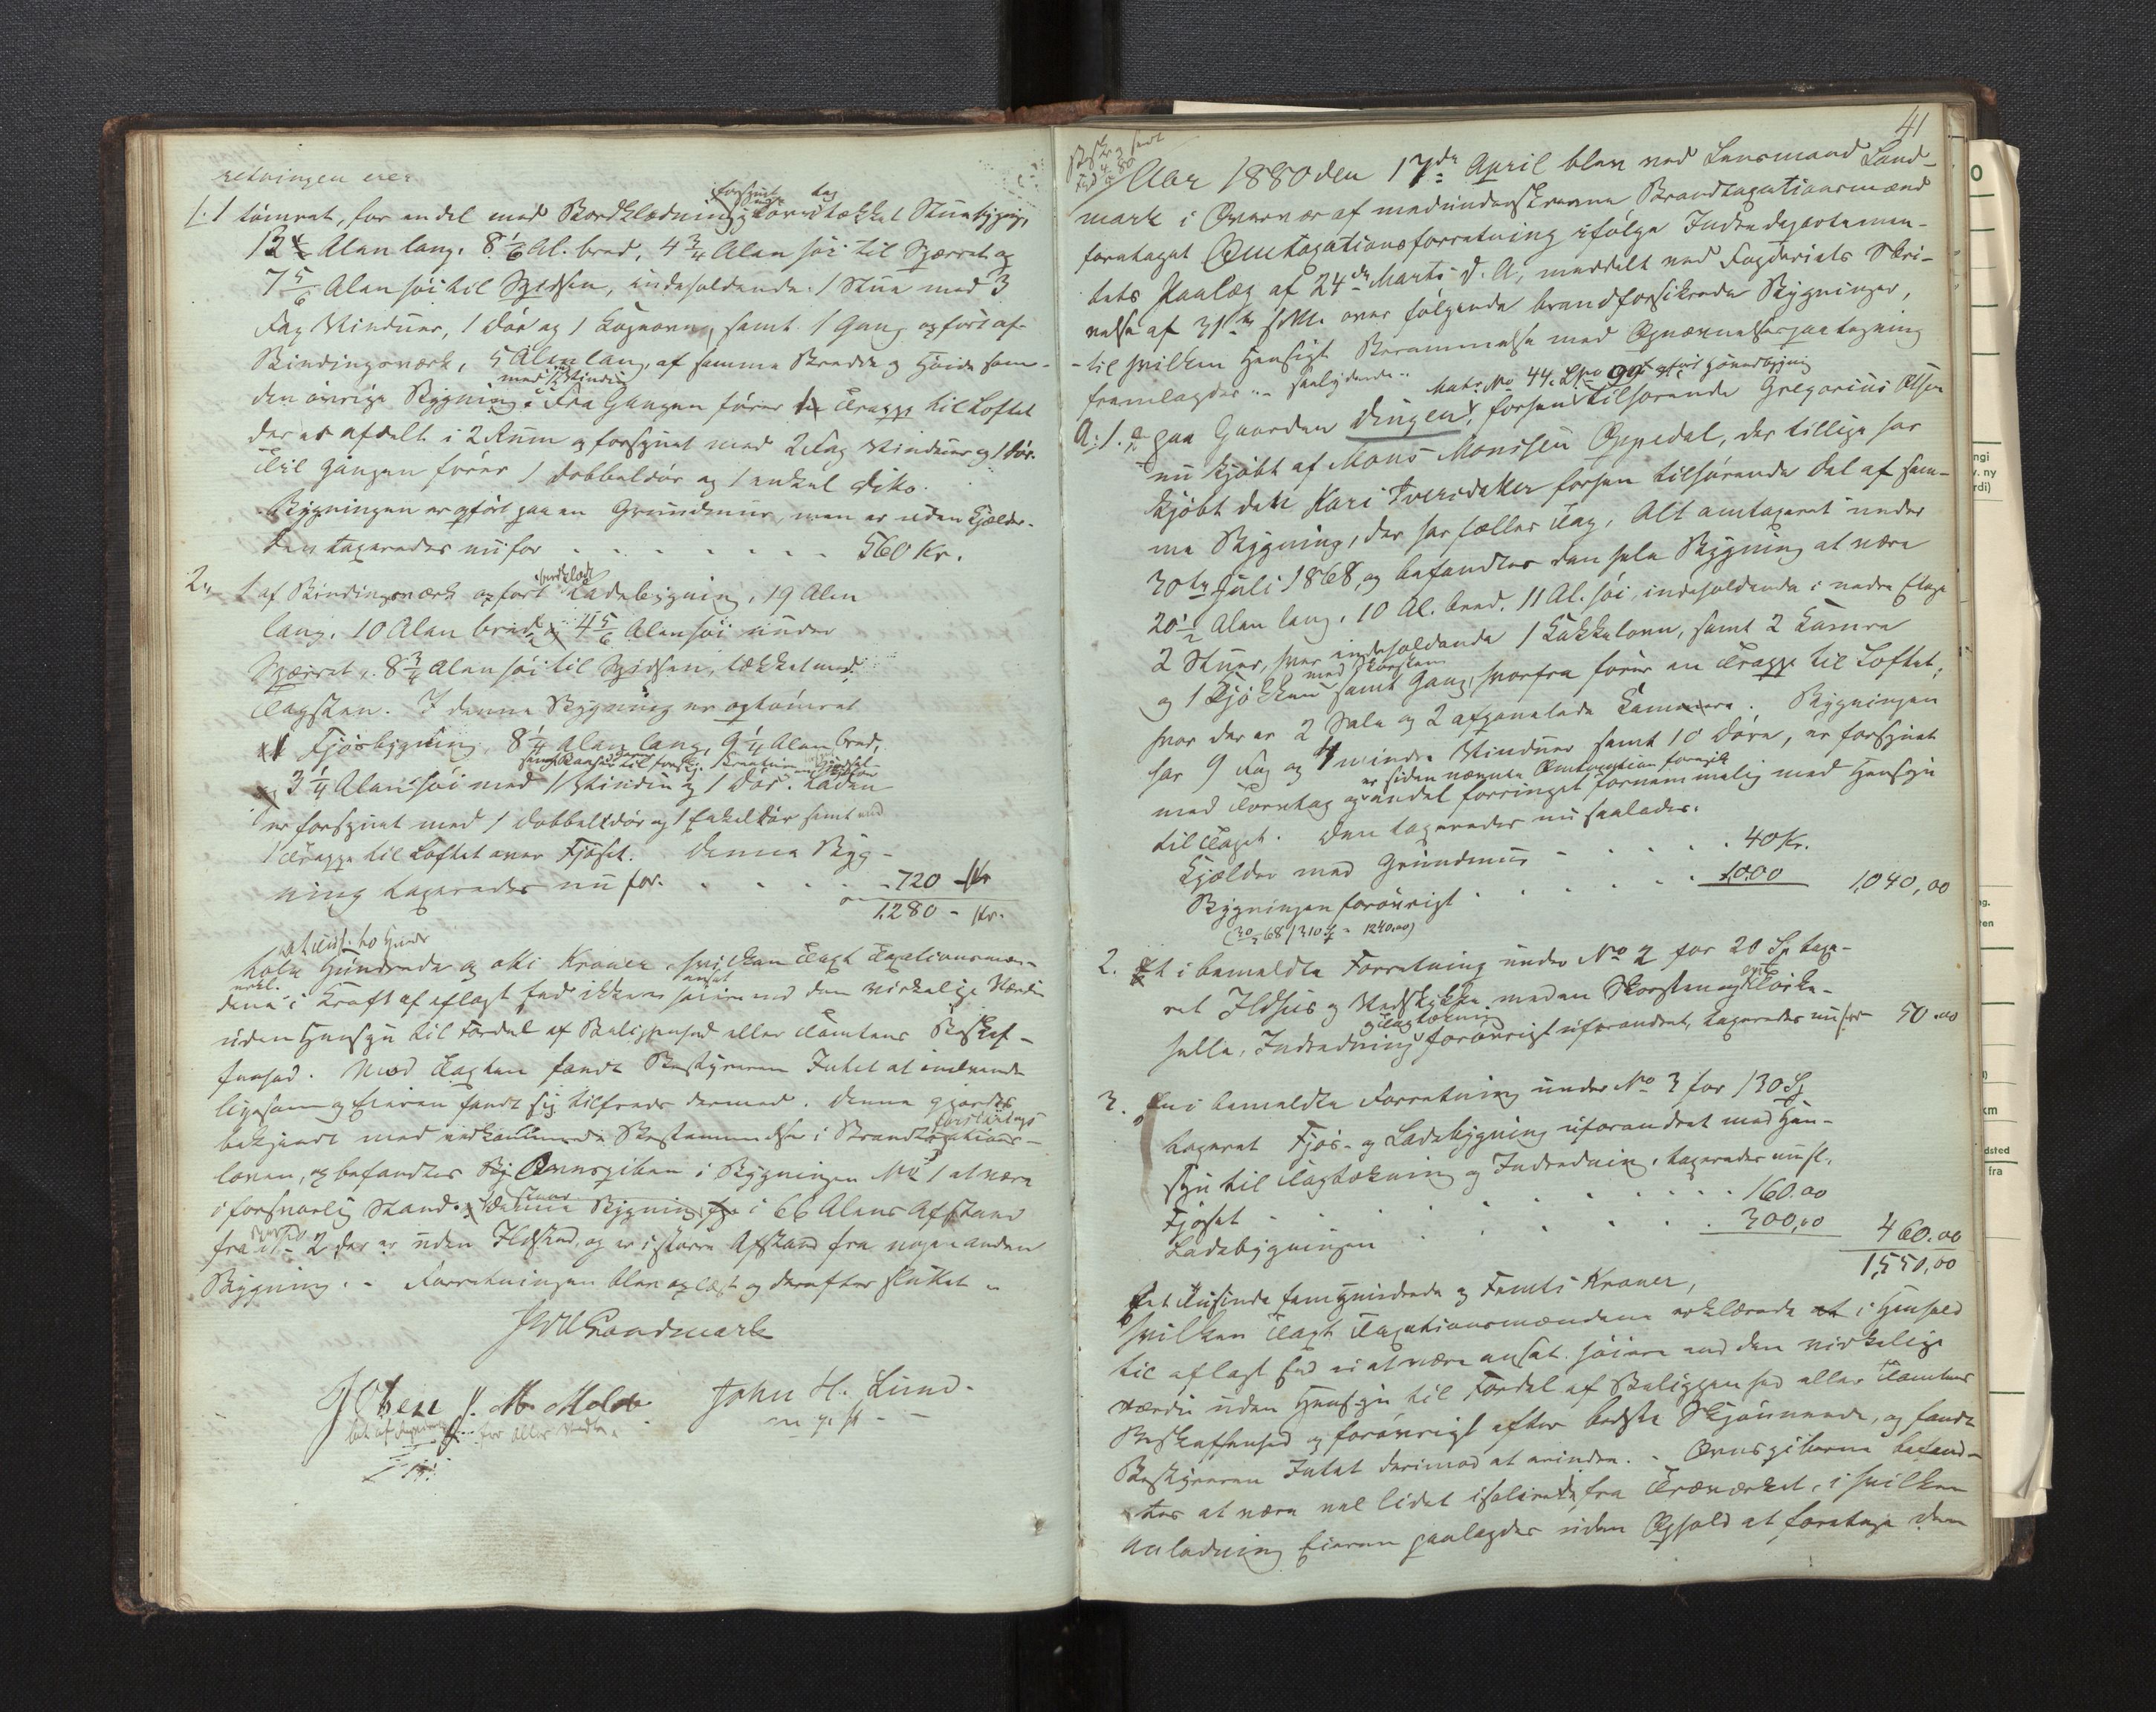 retningen over
1. 1 tømret, for en del med Bordklædning forsynet og tag tækket Stuebygn.,
12 Alen lang. 8 1/6 Al. bred, 4 3/4 Alen høi til Sperret og
7 5/6 Alen høi til Spidsen, indeholdende: 1 Stue med 3
Fag Vinduer, 1 Dør og 1 Kogeovn, samt 1 Gang opført af
Bindingsværk, 5 Alen lang, af samme Bredde og Høide som
den øvrige Bygning med 1 Vindu. Fra Gangen fører Trappe til Loftet
der er afdelt i 2 Rum og forsynet med 2 Fag Vinduer og 1 Dør.
Til Gangen fører 1 Dobbeldør og 1 enkel dito.
Bygningen er opført paa en Grundmur, men er uden Kjælder.
Den taxeredes nu for . . . . . . . 560 Kr.
2. 1 af Bindingsværk opført bordklædt Ladebygning, 19 Alen
lang. 10 Alen bred, 4 5/6 Alen høi under
Sperret, 8 3/4 Alen høi til Spidsen, tækket med
Tagsten. I denne Bygning er optømret
1 Fjøsbygning 8 1/4 Alen lang, 9 1/4 Alen bred,
3 1/4 Alen høi med 1 Vindu og 1 Dør. Laden
er forsynet med 1 Dobbeltdør og 1 Enkeldør samt
1 Trappe til Loftet over Fjøset. Denne Byg-
ning taxeredes nu for . . . . . 720 - Kr
1280 - Kr.
et Tusi. to Hundr
Hundrede og otti Kroner, hvilken Taxt Taxationsmæn-
dene i Kraft af aflagt Ed ikke høiere end den virkelige Værdi
uden Hensyn til Fordel af Beliggenhed eller Tomtens Beskaf-
fenhed. Mod Taxten fandt Bestyreren Intet at indvende
ligesom og Eieren fandt sig tilfreds dermed. Denne gjordes
bekjendt med vedkommende Bestemmelser i Brandforsikrings-
loven, og befandtes Ovnspiben i Bygningen No 1 at være
i forsvarlig Stand. Denne Bygning i 66 Alens Afstand
fra No 2 der er uden Ildsted, og er i større Afstand fra nogen anden
Bygning. - Forretningen blev oplæst og derefter sluttet
Landmark
J Olsen J. M. Molde John H. Lund.
m. p. P.
41
Aar 1880 den 17de April blev ved Lensmand Land-
mark i Overvær af medunderskrevne Brandtaxationsmænd
foretaget Omtaxationsforretning ifølge Indredepartemen-
tets Paalæg af 24de Marts d. A, meddelt ved Fogderiets Skri-
velse af 31te s. M. over følgende brandforsikrede Bygninger,
- til hvilken Hensigt Berammelse med Opnævnelsespaategning
fremlagdes saalydende Matr. No 44. Lno
A: 1. paa Gaarden Dingen, forhen tilhørende Gregorius Olsen
nu kjøbt af Mons Monssen Oppedal, der tillige har
kjøbt den Kari Tveredaker forhen tilhørende Del af sam-
me Bygning, der har fælles Tag, Alt omtaxeret under
30te Juli 1868, og befandtes den hele Bygning at være
20 1/2 Alen lang. 10 Al. bred. 11 Al. høi, indeholdende i nedre Etage
2 Stuer, hver indeholdende 1 Kakkelovn, samt 2 Kamre
og 1 Kjøkken med Skorsten samt Gang, hvorfra fører en Trappe til Loftet,
hvor der er 2 Sale og 2 afpanelede Kammere. Bygningen
har 9 Fag og 4 mindre Vinduer samt 10 Døre, er forsynet
med Torvtag og er siden nævnte Omtaxation foregik en del forringet fornemmelig med Hensyn
til Taget. Den taxeredes nu saaledes.
Kjælder med Grundmur - . . . . 40 Kr.
Bygningen forøvrigt . . . . . 1000 1,040,00
(30/7 68 / 310 = 1240.00)
2. Et i bemeldte Forretning under No 2 for 20 Sp taxe-
ret Ildhus og Vedskykke med en Skorsten og
helle, Indredning og Tagtækning forøvrigt uforandret, taxeredes nu for 50.00
3. En i bemeldte Forretning under No 3 for 130 Sp
taxeret Fjøs- og Ladebygning uforandret med Hen-
syn til Tagtækning og Indredning, taxeredes nu sl.
Fjøset - . . . . . . . 160.00
Ladebygningen . . . . . . 300,00 460.00
1,550,00
Et Tusinde fem Hundrede og Femti Kroner,
hvilken Taxt Taxationsmændene erklærede i Henhold
til aflagt Ed ei at være ansat høiere end den virkelige
Værdi uden Hensyn til Fordel af Beliggenhed eller Tomtens
Beskaffenhed og forøvrigt efter bedste Skjønnende, og fandt
Bestyreren Intet derimod at erindre. - Ovnspiberne befand-
tes at være vel lidet isolerede fra Træværket, i hvilken
Anledning Eieren paalagdes uden Ophold at foretage den